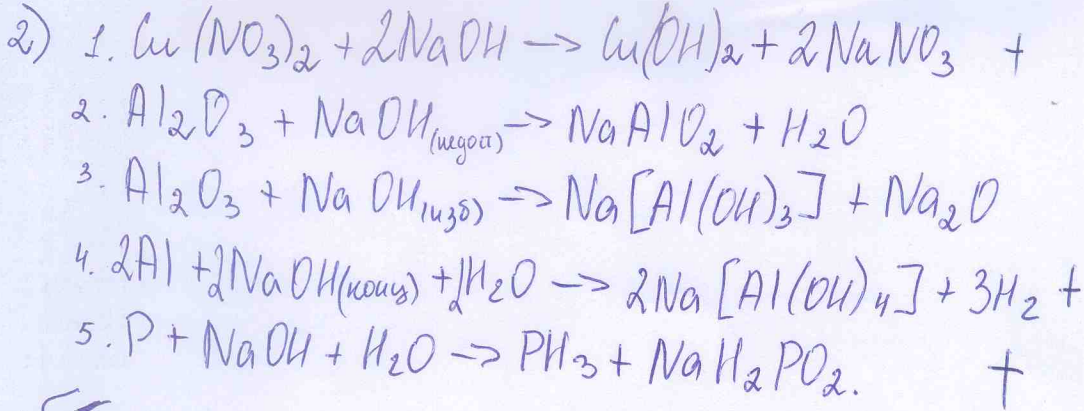 2) 1. Cu(NO₃)₂ + 2NaOH → Cu(OH)₂ + 2NaNO₃ +
2. Al₂O₃ + NaOH(недост) → NaAlO₂ + H₂O
3. Al₂O₃ + NaOH(изб) → Na[Al(OH)₃] + Na₂O
4. 2Al + 2NaOH(конц) + H₂O → 2Na[Al(OH)₄] + 3H₂ +
5. P + NaOH + H₂O → PH₃ + NaH₂PO₂. +